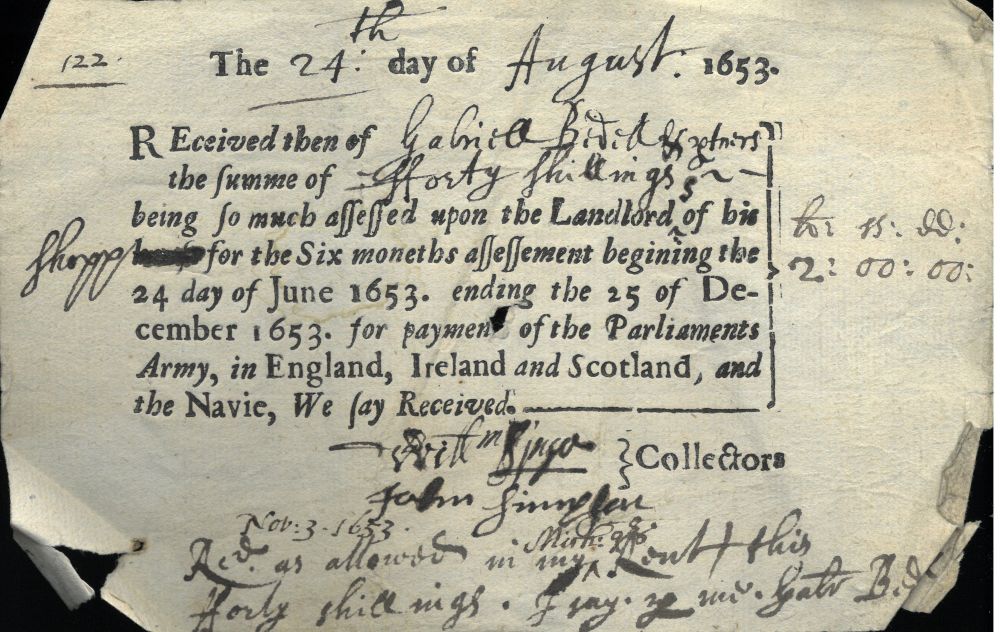 122.
The 24th day of August. 1653.
REceived then of Gabriell Bedell & ptners
the ſumme of Fforty ſhillings
being ſo much aſſeſſed upon the Landlords of his
ſhopp for the Six moneths aſſeſſement begining the
24 day of June 1653. ending the 25 of De-
cember 1653. for payment of the Parliaments
Army, in England, Ireland and Scotland, and
the Navie, We ſay Received.
2: 00: 00:
Willm Collectors
John
Nov. 3. 1653.
Recd. as allowed in my Mich: Rent this
fforty ſhillings. I ſay. me. Gabr Bed